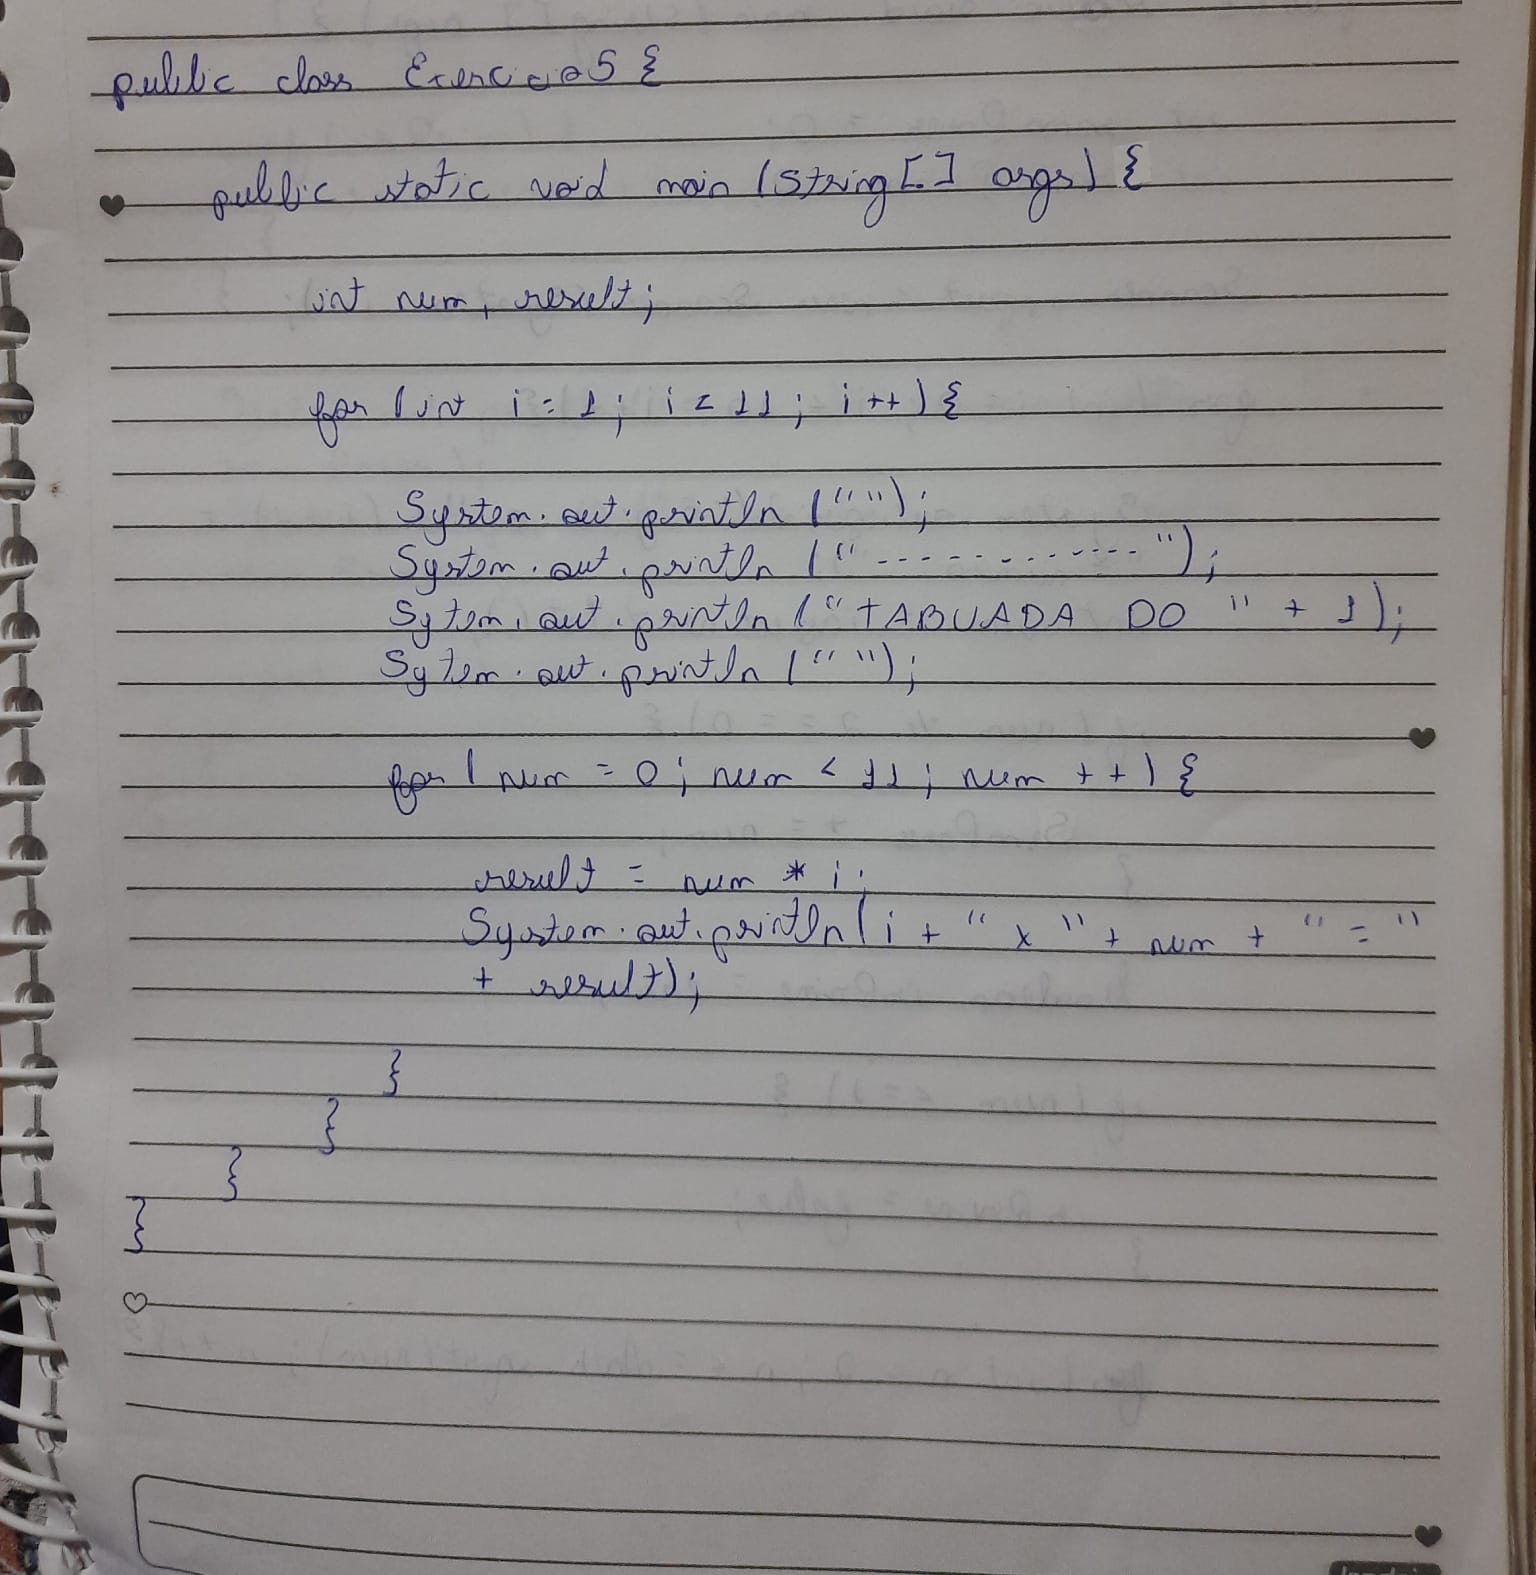 public class Exercicio5 {
public static void main (String[] args) {
int num, result;
for (int i = 1; i < 11; i++) {
System.out.println ("");
System.out.println ("--------------");
Sytem.out.println ("TABUADA DO " + 1);
Sytem.out.println ("");
for (num = 0; num < 11; num ++) {
result = num * i;
System.out.println(i + " x " + num + " = "
+ result);
}
}
}
}